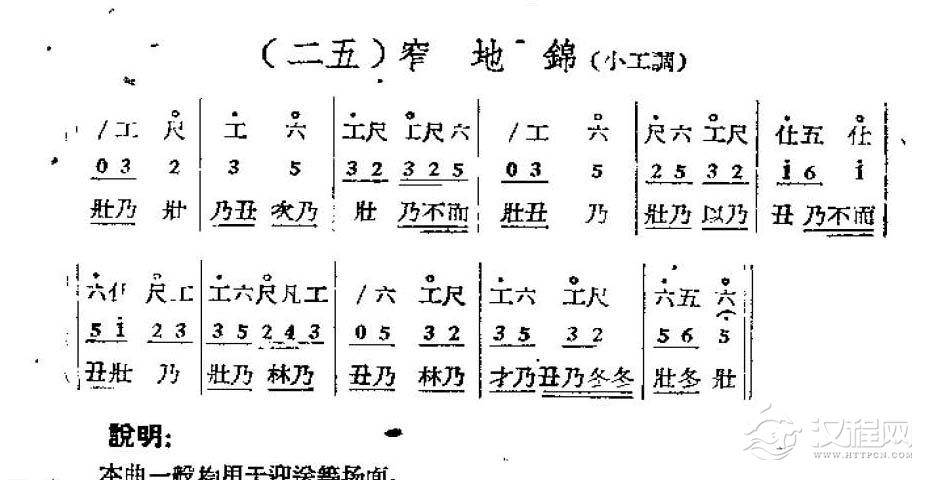 （二五）窄 地 錦（小工調）
/工 尺 | 工 六 | 工尺 工尺六 | /工 六 | 尺六 工尺 | 仕五 仕
0 3 2 | 3 5 | 3 2 3 2 5 | 0 3 5 | 2 5 3 2 | i 6 i
壯乃 壯 | 乃丑 次乃 | 壯 乃不而 | 壯丑 乃 | 壯乃 以乃 | 丑 乃不而
六仕 尺工 | 工六尺凡工 | /六 工尺 | 工六 工尺 | 六五 六
5 i 2 3 | 3 5 2 4 3 | 0 5 3 2 | 3 5 3 2 | 5 6 5
丑壯 乃 | 壯乃 林乃 | 丑乃 林乃 | 才乃丑乃冬冬 | 壯冬 壯
說明：
本曲一般均用于迎送等场面。
汉程网
WWW.HTTPCN.COM